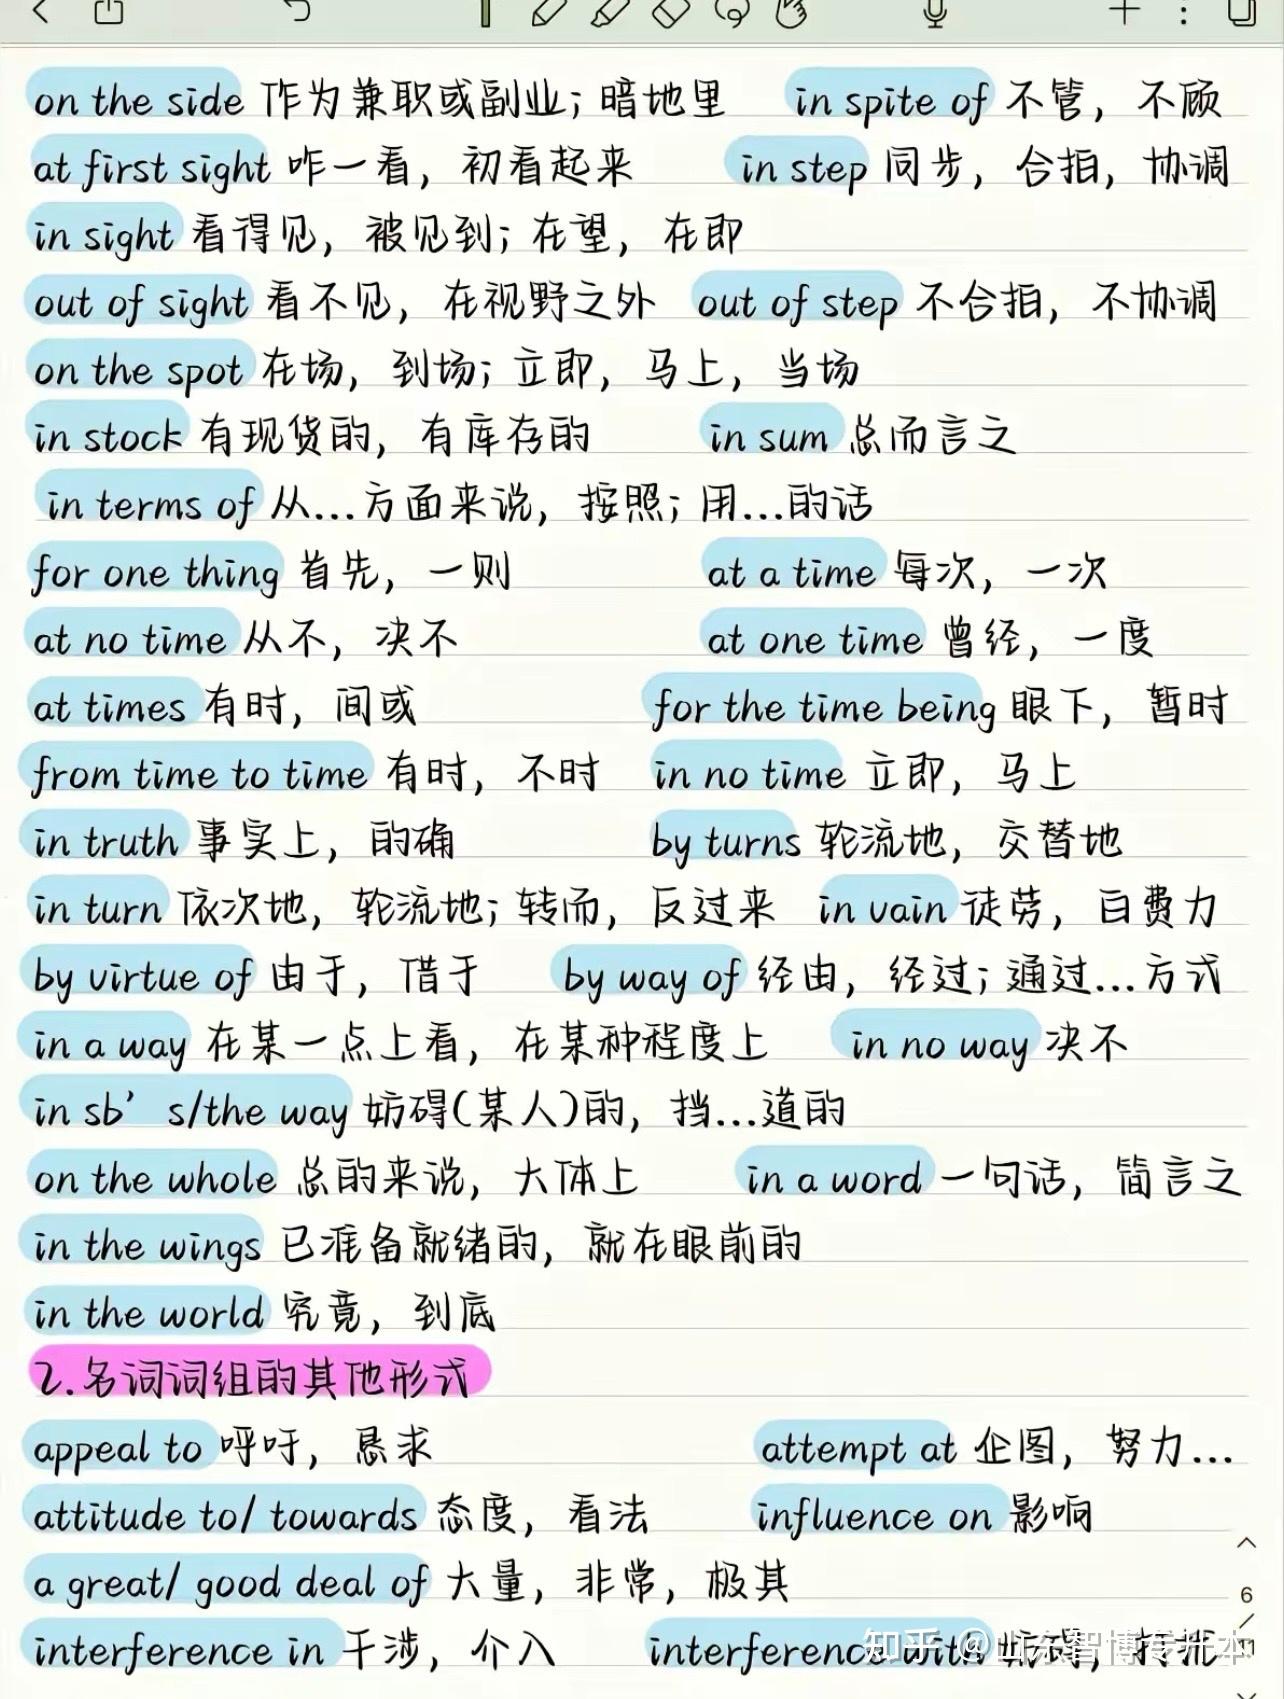 on the side 作为兼职或副业；暗地里 in spite of 不管，不顾
at first sight 咋一看，初看起来 in step 同步，合拍，协调
in sight 看得见，被见到；在望，在即
out of sight 看不见，在视野之外 out of step 不合拍，不协调
on the spot 在场，到场；立即，马上，当场
in stock 有现货的，有库存的 in sum 总而言之
in terms of 从...方面来说，按照；用...的话
for one thing 首先，一则 at a time 每次，一次
at no time 从不，决不 at one time 曾经，一度
at times 有时，间或 for the time being 眼下，暂时
from time to time 有时，不时 in no time 立即，马上
in truth 事实上，的确 by turns 轮流地，交替地
in turn 依次地，轮流地；转而，反过来 in vain 徒劳，白费力
by virtue of 由于，借于 by way of 经由，经过；通过...方式
in a way 在某一点上看，在某种程度上 in no way 决不
in sb’s/the way 妨碍(某人)的，挡...道的
on the whole 总的来说，大体上 in a word 一句话，简言之
in the wings 已准备就绪的，就在眼前的
in the world 究竟，到底
2.名词词组的其他形式
appeal to 呼吁，恳求 attempt at 企图，努力...
attitude to/ towards 态度，看法 influence on 影响
a great/ good deal of 大量，非常，极其
6
interference in 干涉，介入 interference with 妨碍，打扰
知乎 @山东智博专升本